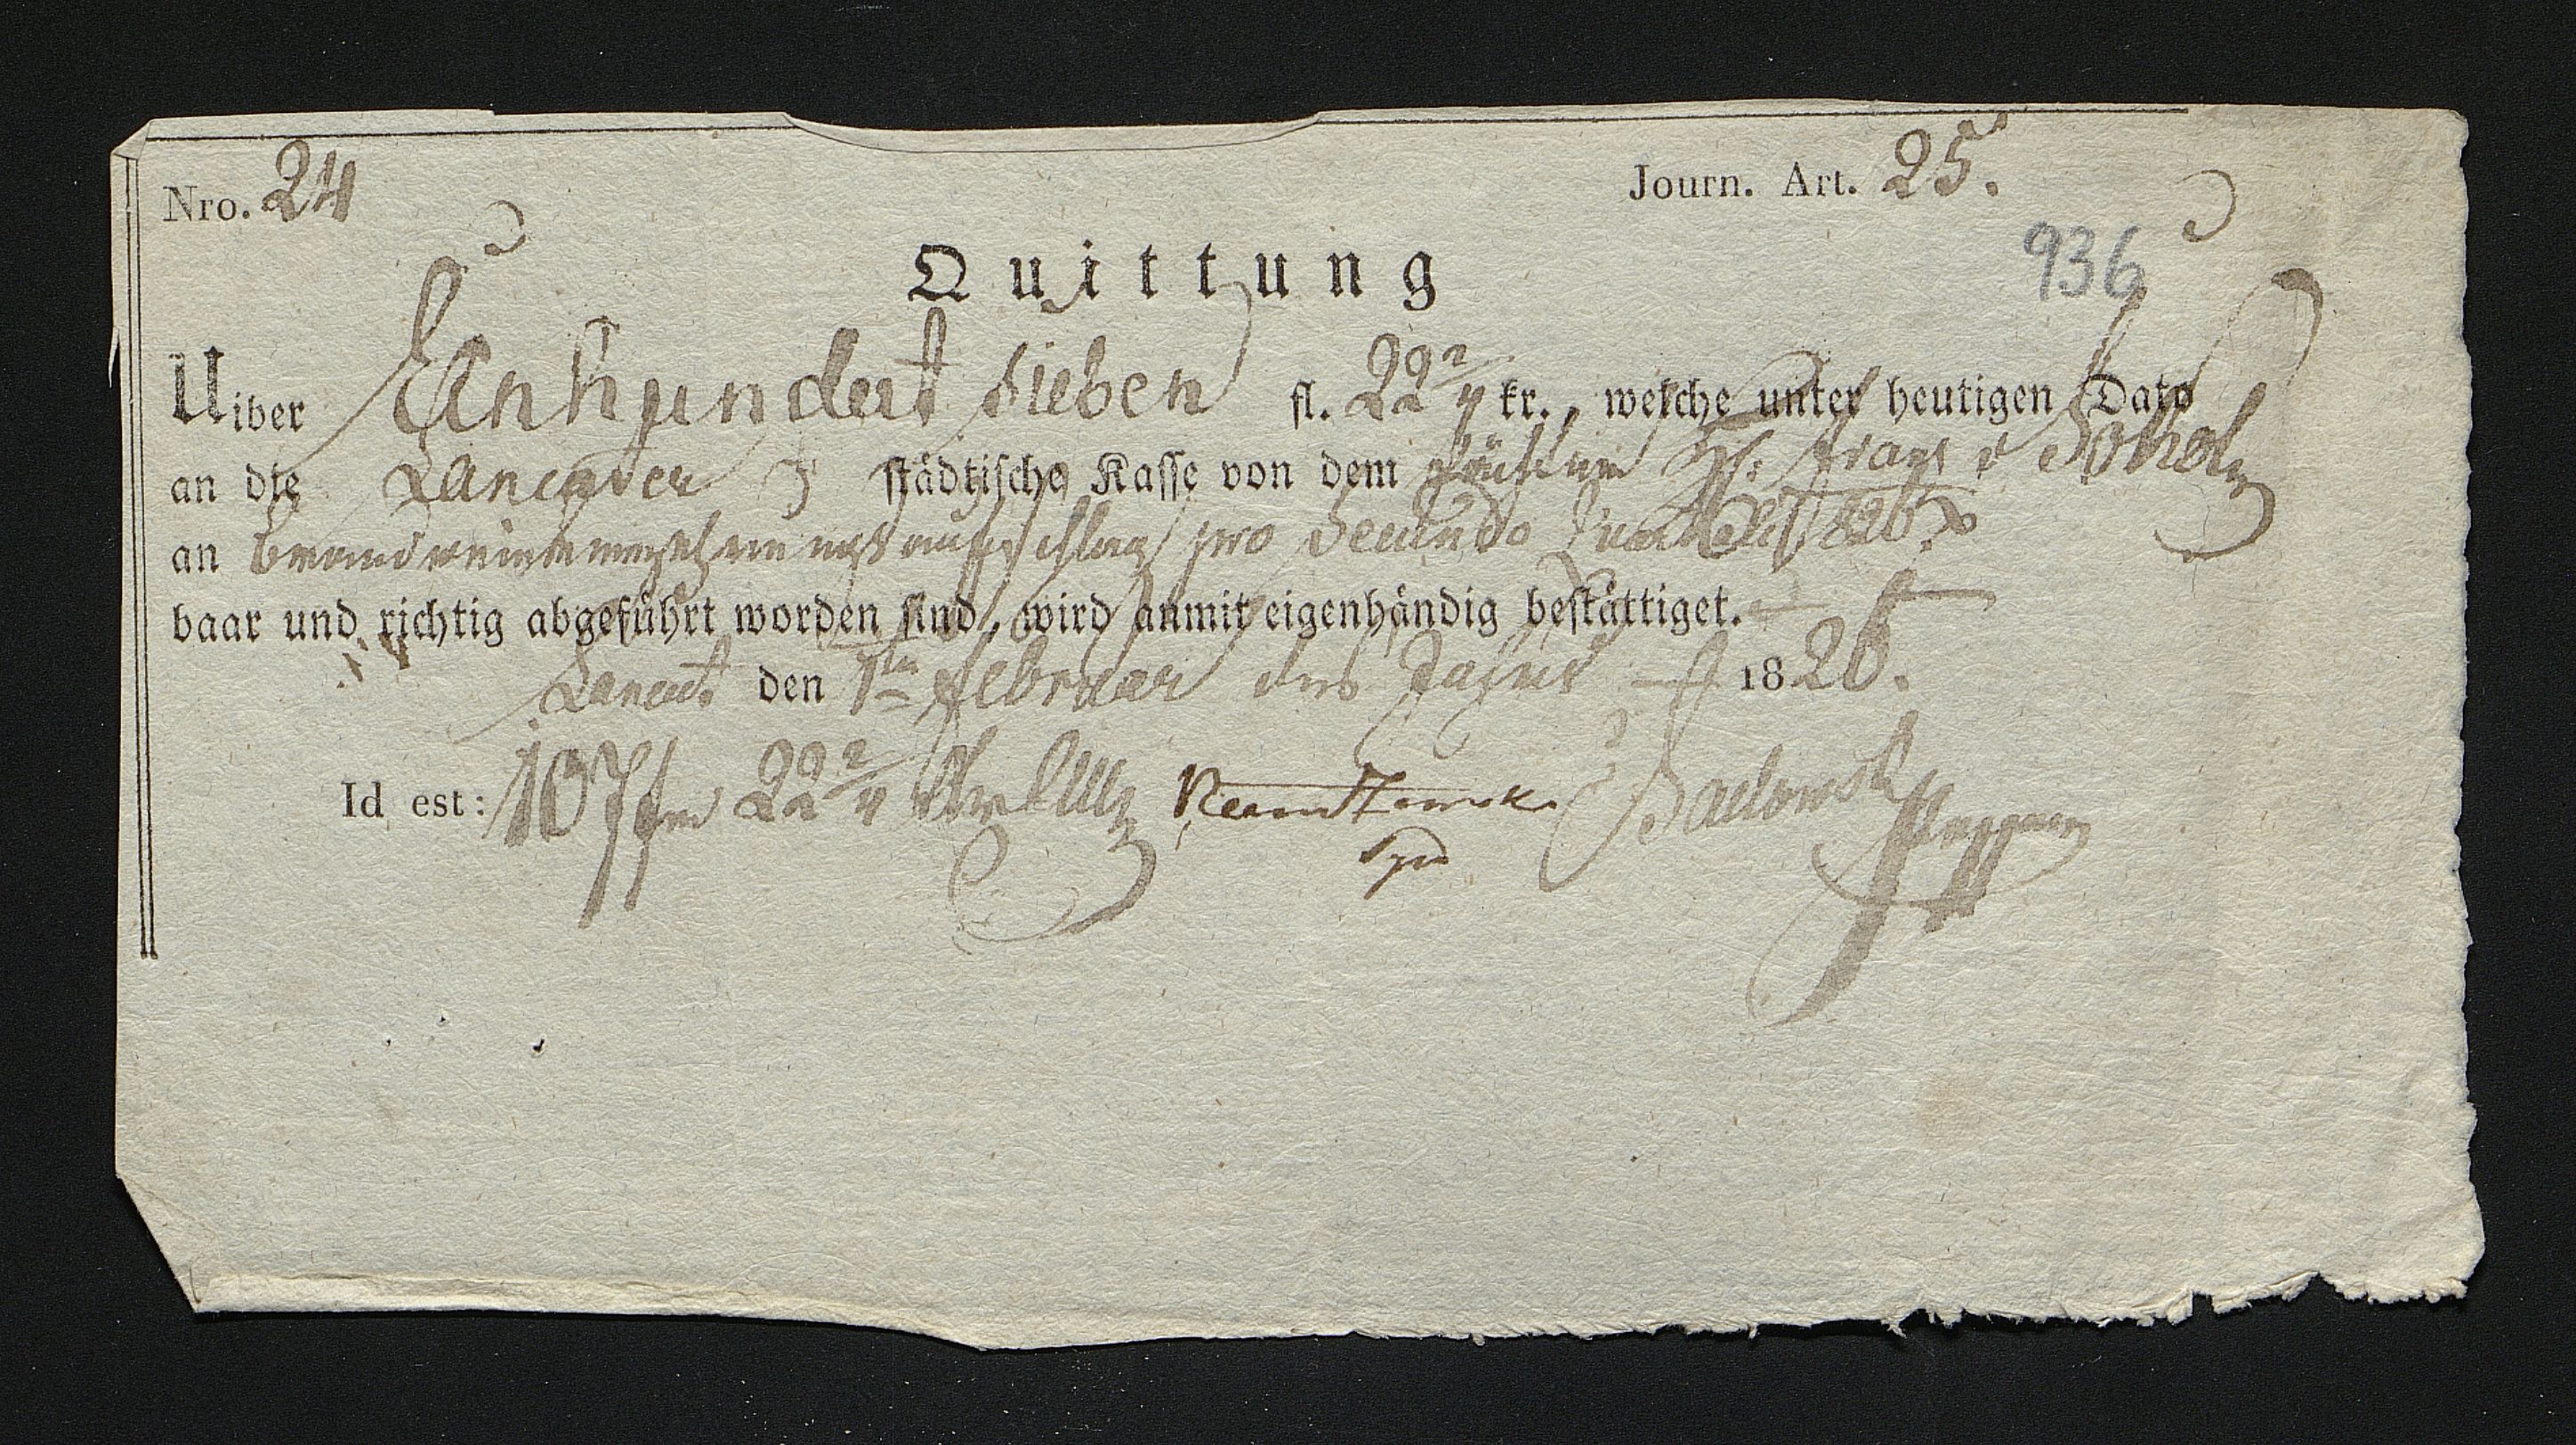 Nro. 24 Journ. Art. 25.
936
Quittung
Uiber Einhundert sieben fl. 22 2/4 kr., welche unter heutigen Dato
an die Lancuter städtische Kasse von dem Pächter H: Franz v
an pro Secundo Quartali 1826
baar und richtig abgeführt worden sind, wird anmit eigenhändig bestättiget.
Lancut den 1ten Februar des Jahres 1826.
Id est: 107 fr 22 2/4 xr